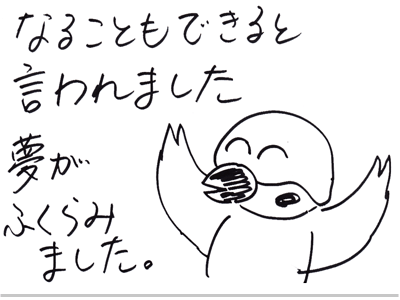 なることもできると
言われました
夢が
ふくらみ
ました。